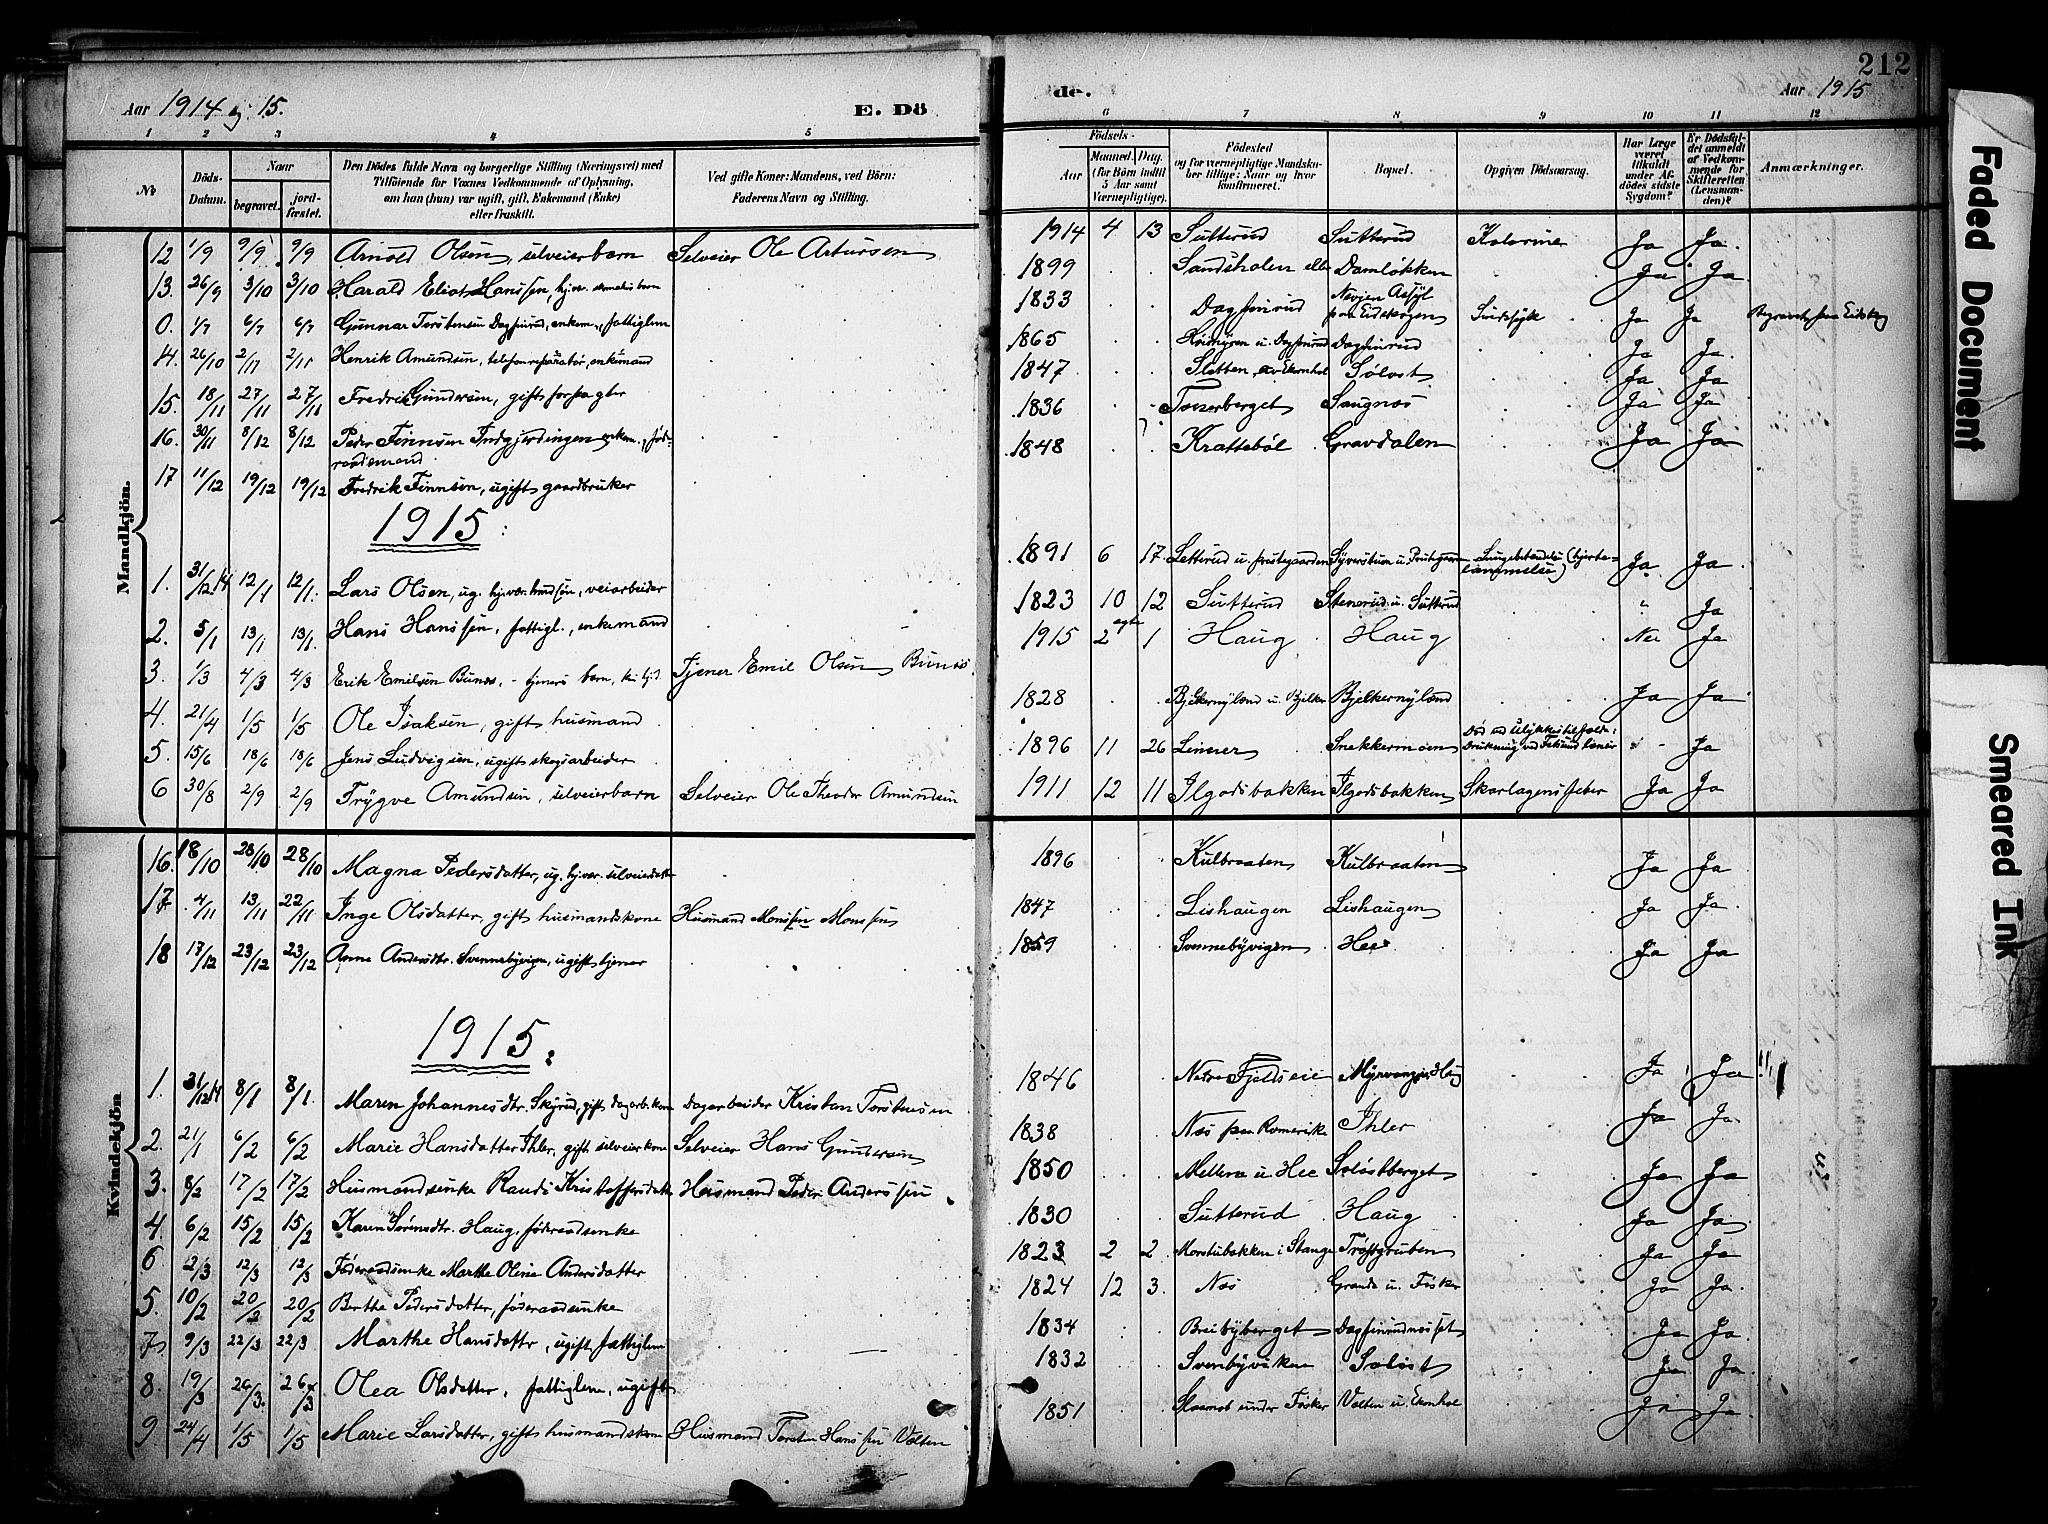 Aar 1914 og 15.
E. Dö
1 2 3 4 5
No
Döds-Datum.
Naar
begravet.
jord-fæstet.
Den Dödes fulde Navn og borgerlige Stilling (Næringsvei) med
Tilföiende for Voxnes Vedkommende af Oplysning,
om han (hun) var ugift, gift, Enkemand (Enke)
eller fraskilt.
Ved gifte Koner: Mandens, ved Börn:
Faderens Navn og Stilling.
Mandkjön.
12 1/9 9/9 9/9 Arnold Olsen, selveierbarn Selveier Ole Artursen
13. 26/9 3/10 3/10 Harald Eliot Hanssen, hjvær.
0. 1/7 6/7 6/7 Gunnar Torstensen Dagfinrud, enkem., fattiglem
14. 26/10 2/11 2/11 Henrik Amundsen, telefonreparatør, enkemand
15. 18/11 27/11 27/11 Fredrik Gundersen, gift forpagter
16. 30/11 8/12 8/12 Peder Finnsen Indgjerdingen enkem., føderaadsmand
17 11/12 19/12 19/12 Fredrik Finnsen, ugift gaardbruker
1915:
1. 31/12 14 12/1 12/1. Lars Olsen, ug. hjvær. veiarbeider
2. 5/1 13/1 13/1 Hans Hanssen, fattigl., enkemand
3. 1/3 4/3 4/3 Erik Emilsen Bunæs, - tjeners barn, Tjener Emil Olsen Bunæs
4. 21/4 1/5 1/5 Ole Isaksen, gift husmand
5. 15/6 18/6 18/6 Jens Ludvigsen, ugift skogsarbeider
6 30/8 2/9 2/9 Trygve Amundsen, selveierbarn Selveier Ole Theodor Amundsen
Kvindekjön
16. 18/10 28/10 28/10 Magna Pedersdatter, ug. hjvær. selveierdatter
17 4/11 13/11 22/11 Inge Olsdatter, gift husmandskone Husmand Monssen Monssen
18 17/12 23/12 23/12 Anne Andersdtr. Svennebyvigen, ugift tjener
1915:
1. 31/12 14 8/1 8/1. Maren Johannesdtr. Skyrud, gift dagarb.kone Dagarbeider Kristian Torstensen
2. 21/1 6/2 6/2 Marie Hansdatter Ihler, gift selveierkone Selveier Hans Gundersen
3. 8/2 17/2 17/2 Husmandsenke Randi Kristoffersdatter Husmand Peder Anderssen
4. 6/2 15/2 15/2 Karen Sørensdtr. Haug, føderaadsenke
6 2/3 12/3 12/3 Føderaadsenke Marthe Oline Andersdatter
5. 10/2 20/2 20/2 Berthe Pedersdatter, føderaadsenke
7 9/3 22/3 22/3 Marthe Hansdatter, ugift fattiglem
8 19/3 26/3. 26/3 Olea Olsdatter, fattiglem, ugift
9 24/4 1/5 1/5 Marie Larsdatter, gift husmandskone Husmand Torsten Hanssen Volten
de.
212
Aar 1915
6 7 8 9 10 11 12
Födsels-
Aar
Maaned. Dag.
(for Börn indtil
5 Aar samt
Værnepligtige).
Födested
og for værnepligtige Mandsku-
ber tillige: Naar og hvor
konfirmeret.
Bopæl.
Opgiven Dödsaarsag.
Har Læge
været
tilkaldt
under Af-
dödes sidste
Sygdom?
Er Dödsfal-
det anmeldt
af Vedkom-
mende for
Skifteretten
(Lensman-
den)?
Anmærkninger.
1914 4 13 Sutterud Sutterud Ja Ja.
1899 Sandsholen eller Damløkken Ja Ja
1833 Dagfinrud paa Eidskogen Sindssyk Ja Ja Begravet paa Eidskog
1865 u. Dagfinrud Dagfinrud Ja Ja.
1847 Sletten Solvst Ja. Ja
1836 Taaserberget Saugnæs Ja Ja
1848 Krattebøl Gravdalen Ja Ja
1891 6 17. Letterud u. prestegaarden Lungebetændelse (hjertelammelse) Ja Ja
1823 10 12 Sutterud Stenerud u. Sutterud " Ja
1915 2 egte 1 Haug Haug Nei Ja
1828 Bjelkernyland u. Bjelker Bjelkernyland Ja Ja
1896 11 26 Linner Snekkermoen Død ved Ulykkestilfælde: Drukning ved - Ja
1911 12 11 Ilgodsbakken Ilgodsbakken Skarlagensfeber Ja Ja
1896 Kulbraaten Kulbraaten Ja Ja
1847 Lishaugen Lishaugen Ja Ja.
1859 Svennebyvigen Hee Ja Ja
1846 Fjeldseie Myrvang u. Haug Ja Ja
1838 Næs paa Romerike Ihler Ja Ja.
1850 Mellem u. Hee Soløstberget Ja Ja
1830 Sutterud Haug Ja Ja
1823 2 2 Morstubakken i Stange Trøstgruben Ja Ja.
1824 12 3. Næs Grande u. Fosker Ja Ja.
1834 Breibyberget Dagfinrudmosset Ja Ja.
1832 Svenbyviken Soløst Ja Ja
1851 under Fosker Volten u. Ekornhol Ja Ja.
Faded Document
Smeared Ink